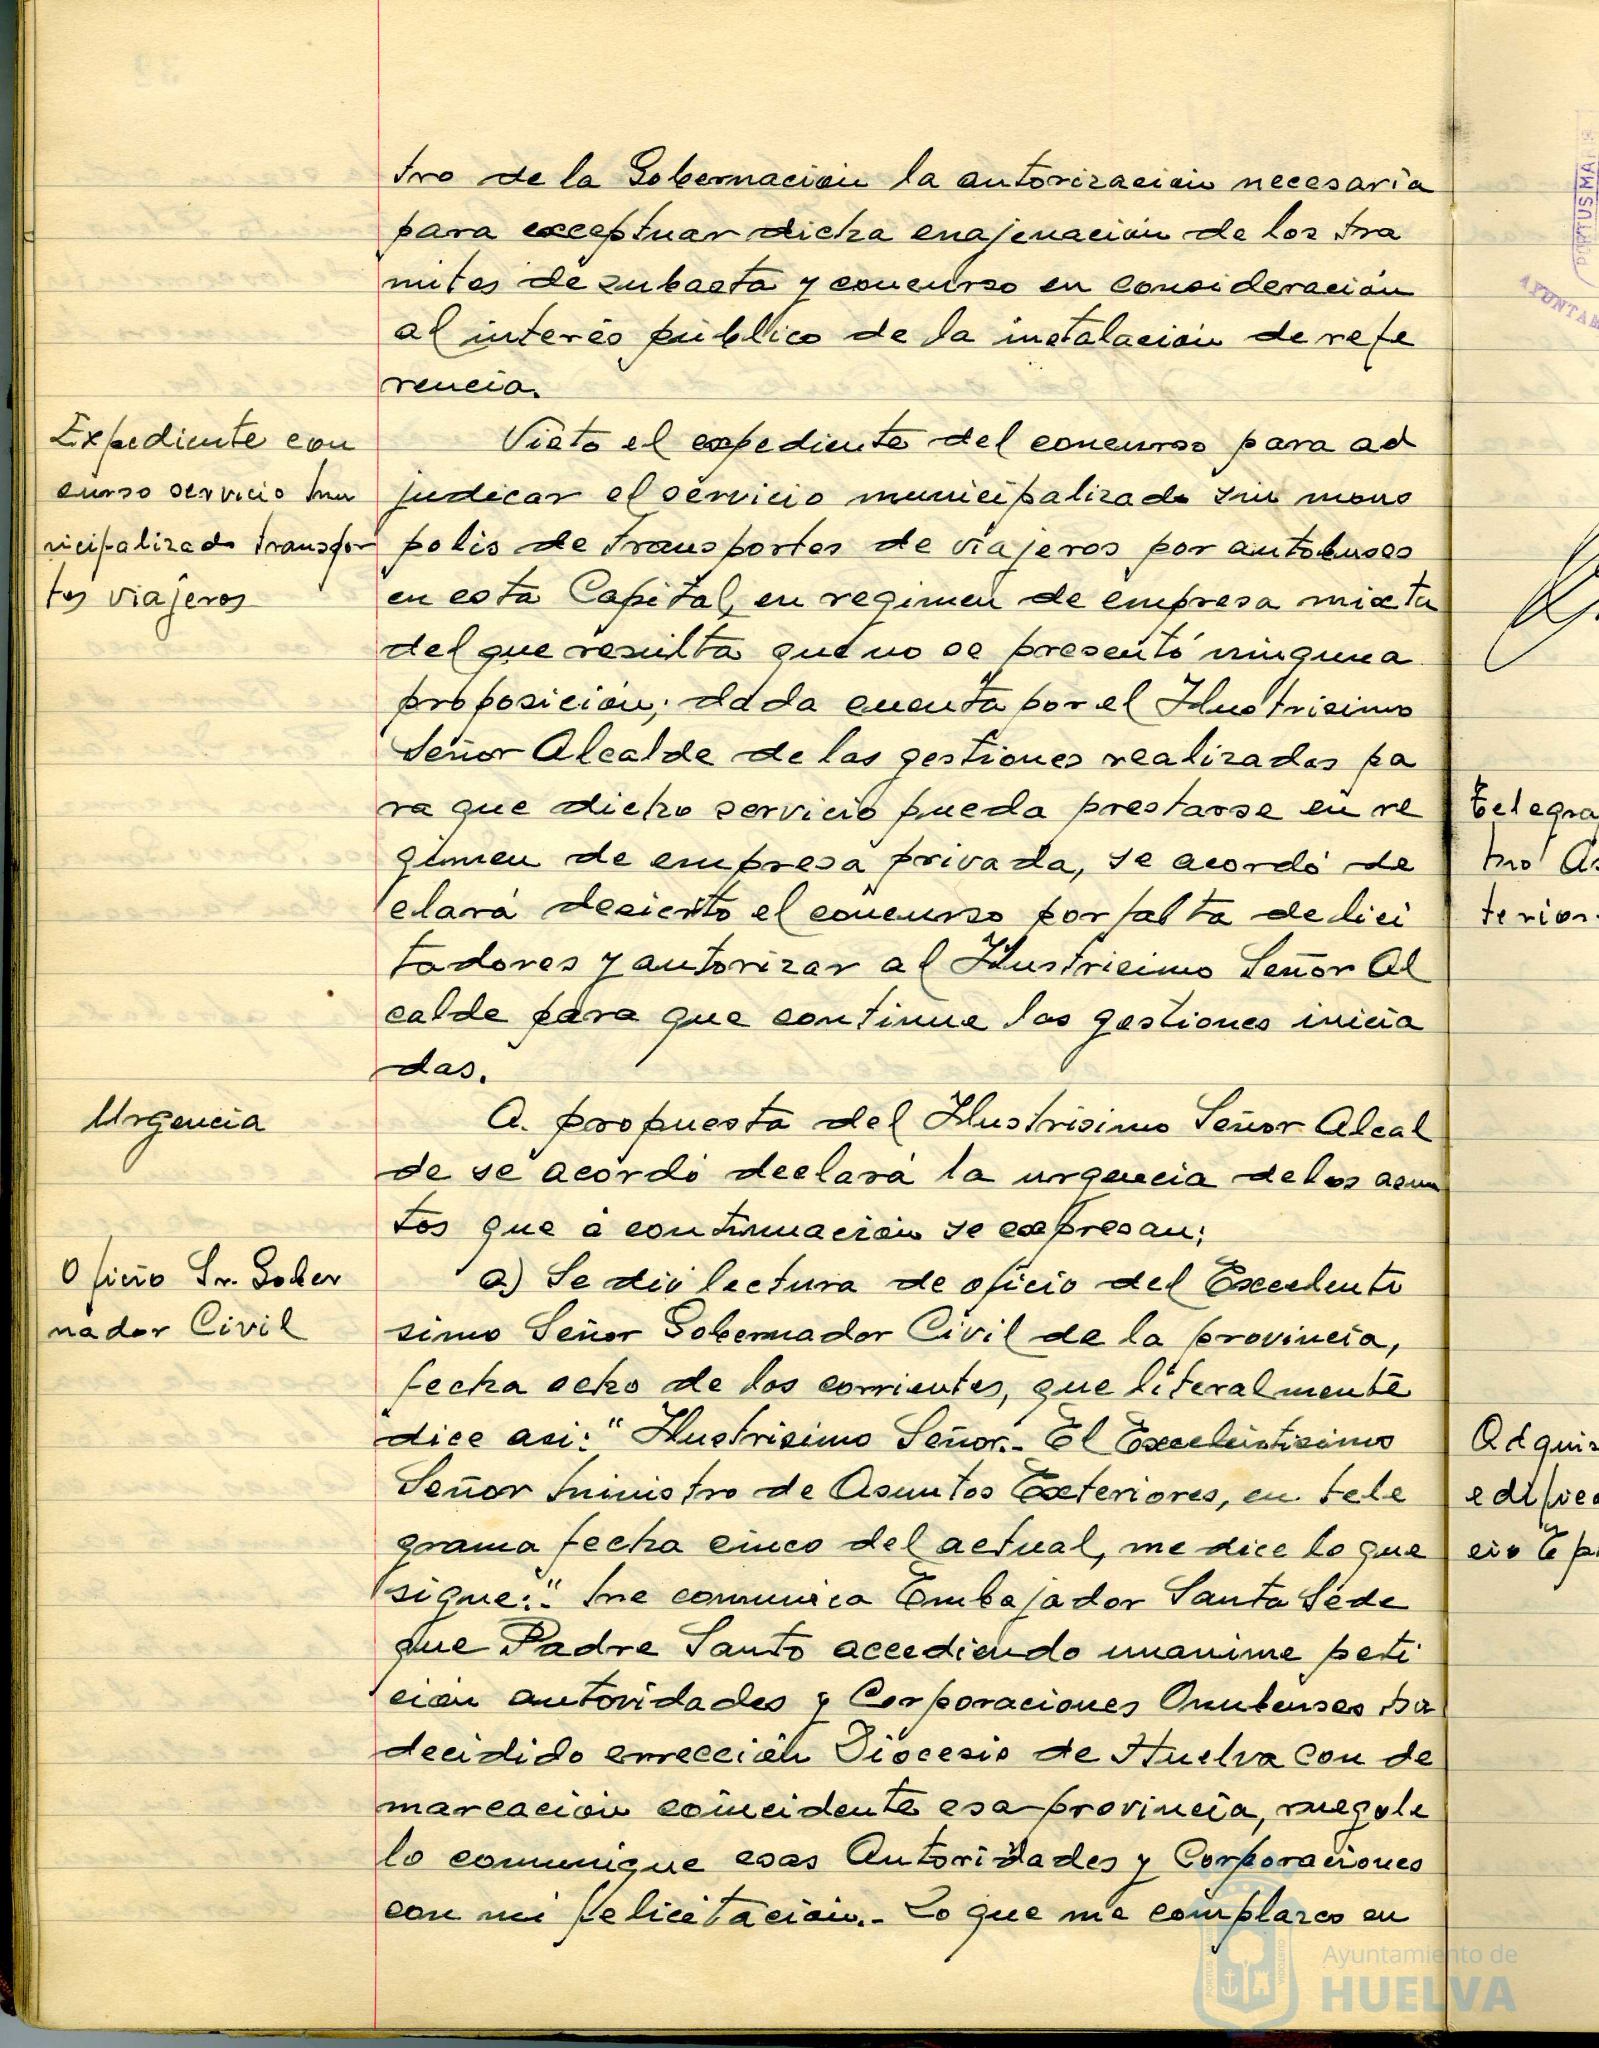 tro de la Gobernación la autorización necesaria
para exceptuar dicha enajenación de los tra
mites de subasta y concurso en consideración
al interés público de la instalación de refe
rencia.
Expediente con
curso servicio mu
nicipalizado transpor
tes viajeros
Visto el expediente del concurso para ad
judicar el servicio municipalizado sin mono
polio de transportes de viajeros por autobuses
en esta Capital, en regimen de empresa mixta
del que resulta que no se presentó ninguna
proposición; dada cuenta por el Ilustrisimo
Señor Alcalde de las gestiones realizadas pa
ra que dicho servicio pueda prestarse en re
gimen de empresa privada, se acordó de
clará desierto el concurso por falta de lici
tadores y autorizar al Ilustrisimo Señor Al
calde para que continue las gestiones inicia
das.
Urgencia
A propuesta del Ilustrisimo Señor Alcal
de se acordó declará la urgencia de los asun
tos que á continuación se expresan:
Oficio Sr. Gober
nador Civil
a) Se dió lectura de oficio del Excelenti
simo Señor Gobernador Civil de la provincia,
fecha ocho de los corrientes, que literalmente
dice asi: "Ilustrisimo Señor.- El Excelentisimo
Señor Ministro de Asuntos Exteriores, en tele
grama fecha cinco del actual, me dice lo que
sigue:" Me comunica Embajador Santa Sede
que Padre Santo accediendo unanime peti
ción autoridades y Corporaciones Onubenses ha
decidido erreccion Diocesis de Huelva con de
marcación coincidente esa provincia, ruegole
lo comunique esas Autoridades y Corporaciones
con mi felicitación.- Lo que me complazco en
Telegra
mo As
terior
Adquis
edifico
cio Ep
PORTUS MARIS
AYUNTAM
Ayuntamiento de
HUELVA